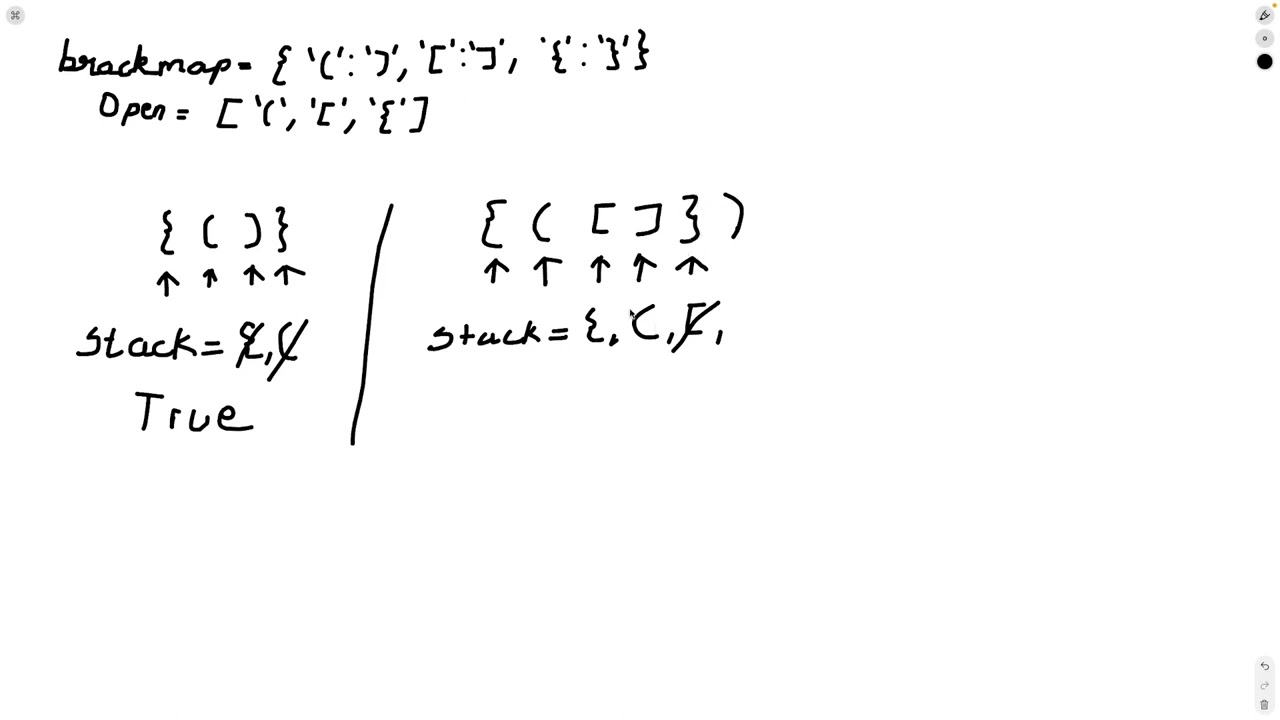 brackmap = { '(':')', '[':']', '{':'}'}
Open = ['(', '[', '{']
{ ( ) }
↑ ↑ ↑ ↑
stack = {, (
True
{ ( [ ] } )
↑ ↑ ↑ ↑ ↑
stack = {, (, [,